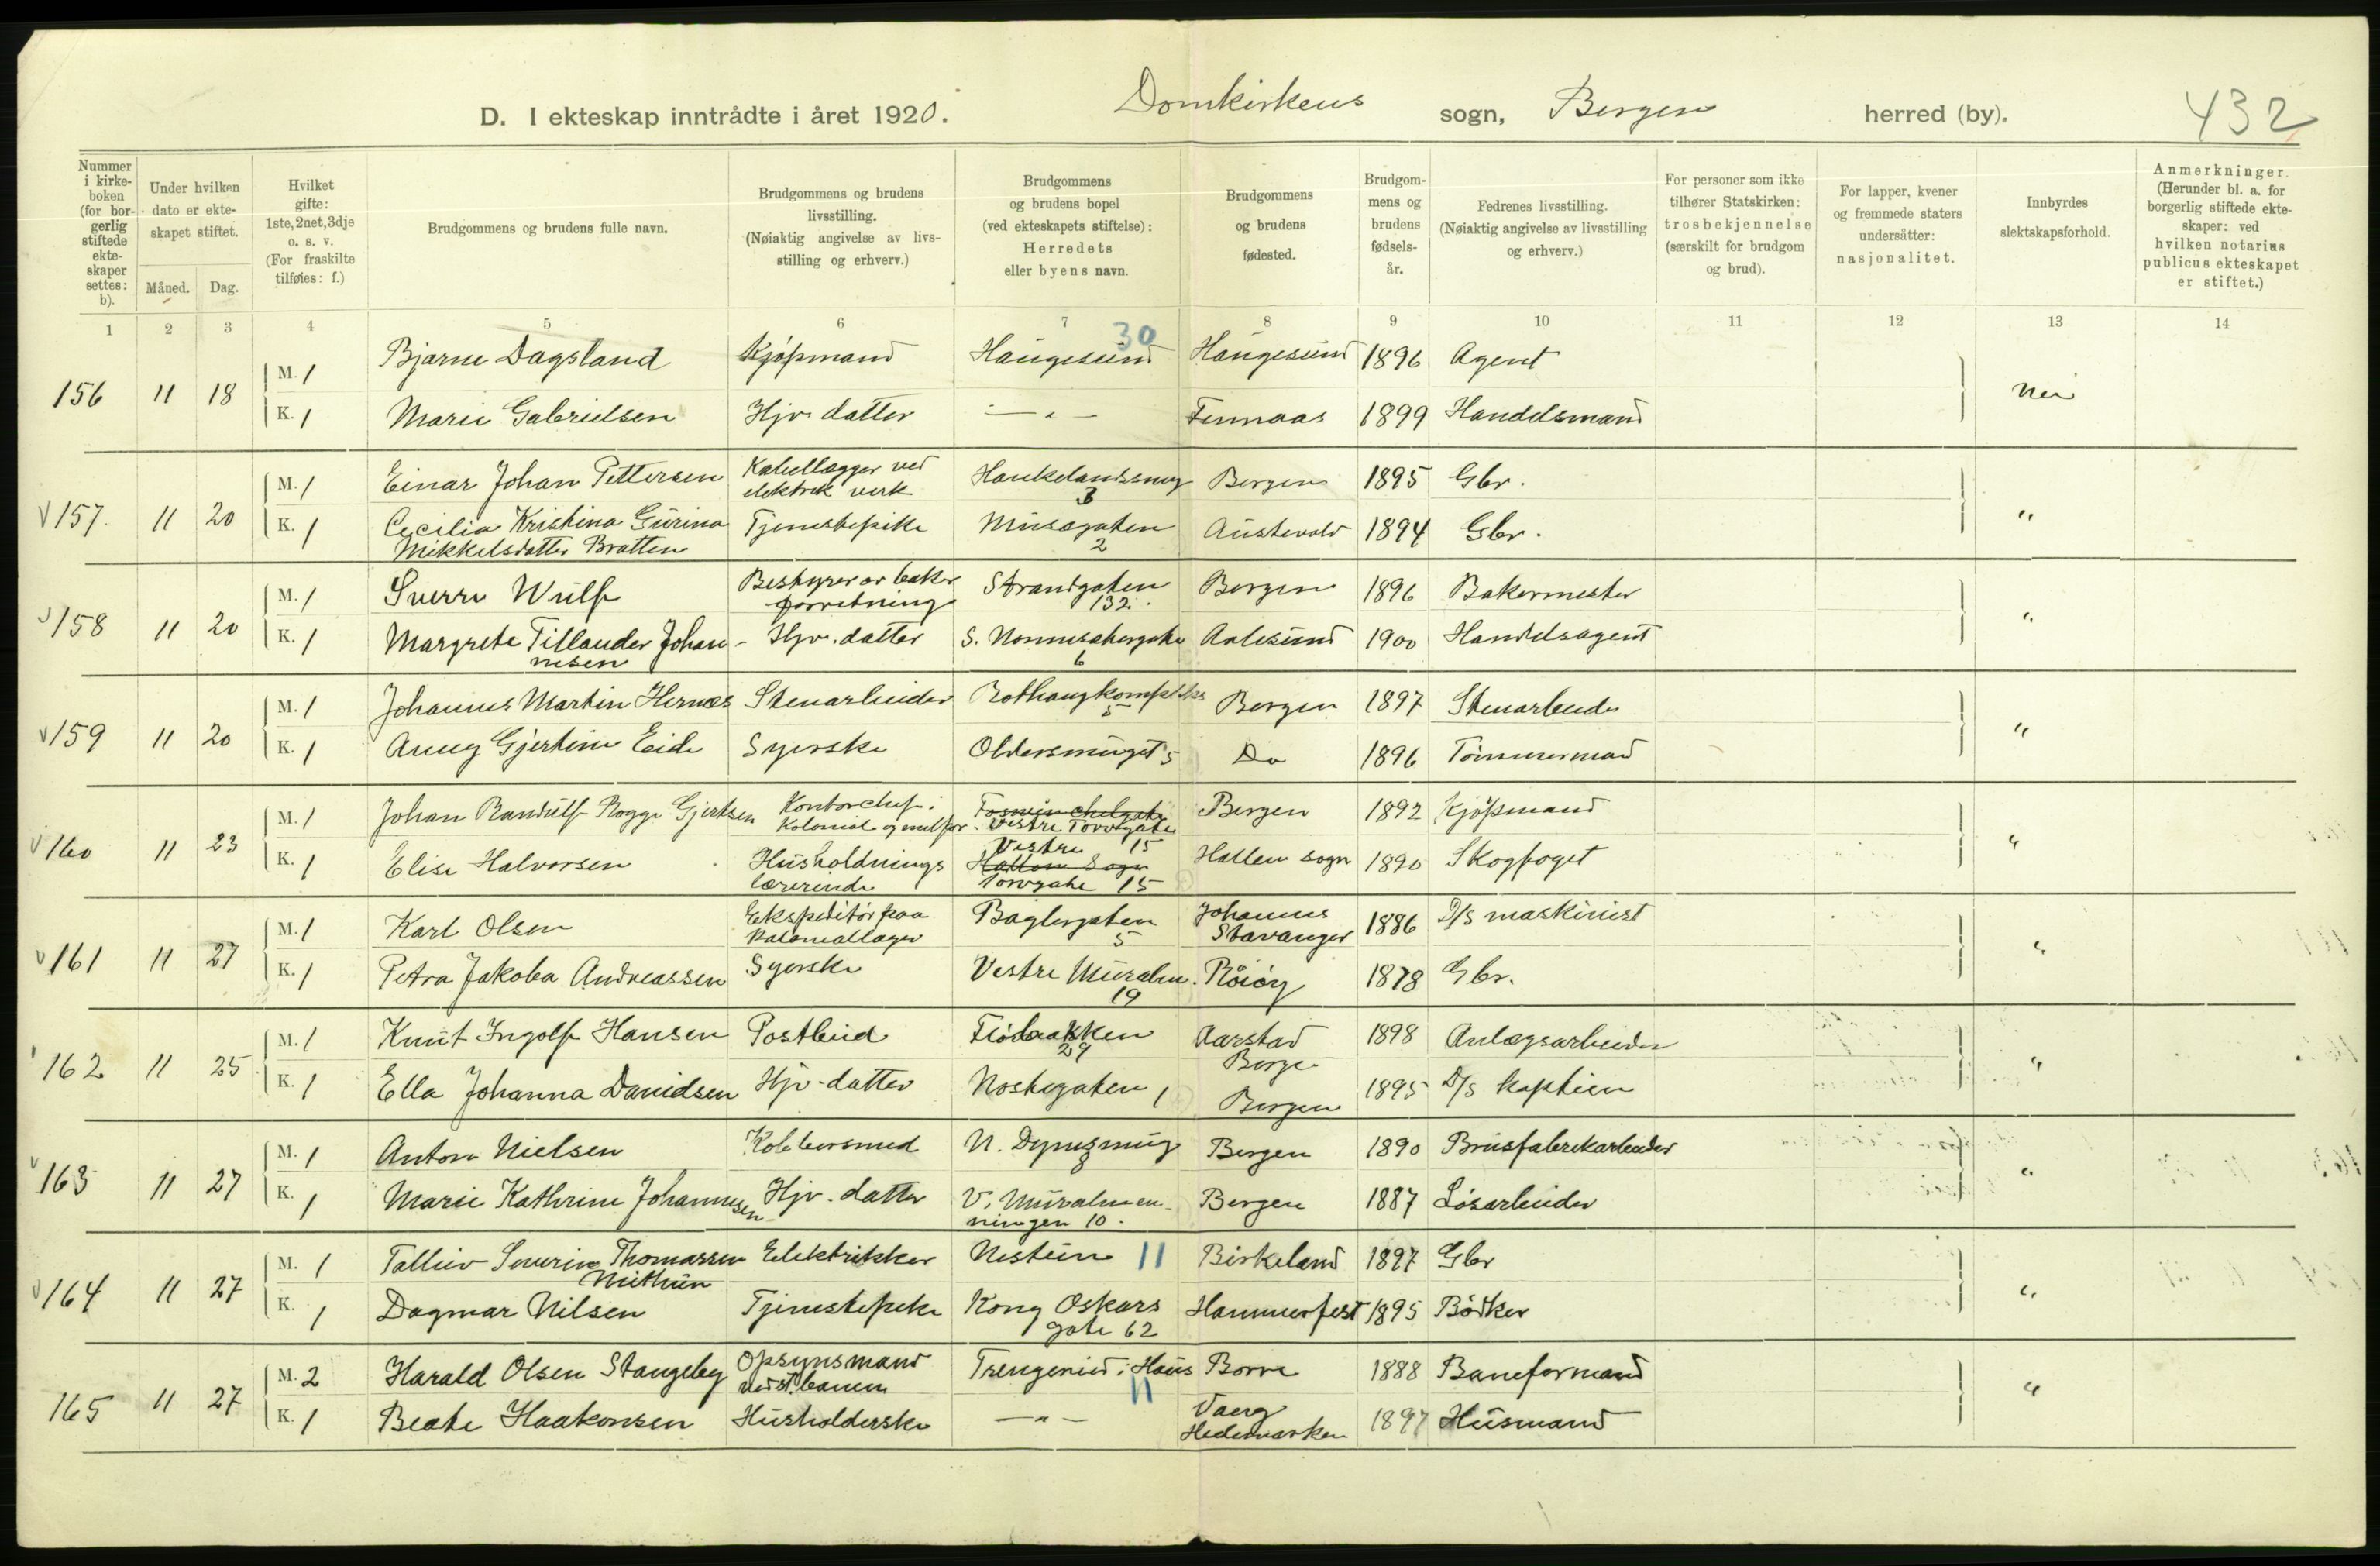 D. I ekteskap inntrådte i året 1920. Domkirkens sogn, Bergen herred (by). 432
Nummer i kirkeboken (for borgerlig stiftede ekteskaper settes: b).
Under hvilken dato er ekteskapet stiftet.
Måned. Dag.
Hvilket gifte: 1ste, 2net, 3dje o. s. v. (For fraskilte tilføies: f.)
Brudgommens og brudens fulle navn.
Brudgommens og brudens livsstilling. (Nøiaktig angivelse av livsstilling og erhverv.)
Brudgommens og brudens bopel (ved ekteskapets stiftelse): Herredets eller byens navn.
Brudgommens og brudens fødested.
Brudgommens og brudens fødselsår.
Fedrenes livsstilling. (Nøiaktig angivelse av livsstilling og erhverv.)
For personer som ikke tilhører Statskirken: trosbekjennelse (særskilt for brudgom og brud).
For lapper, kvener og fremmede staters undersåtter: nasjonalitet.
Innbyrdes slektskapsforhold.
Anmerkninger. (Herunder bl. a. for borgerlig stiftede ekteskaper: ved hvilken notarius publicus ekteskapet er stiftet.)
1 2 3 4 5 6 7 8 9 10 11 12 13 14
30
156 11 18 M. 1 Bjarne Dagsland Kjøpmand Haugesund Haugesund 1896 Agent
K. 1 Marie Gabrielsen Hjv. datter — " — Finnaas 1899 Handelsmand Nei
V 157. 11 20 M. 1 Einar Johan Pettersen Kabellægger ved elektrik verk Haukelandssmug 3 Bergen 1895 Gbr.
K. 1 Cecilia Kristina Gurina Mikkelsdatter Bratten Tjenestepike Musegaten 2 Austevold 1894 Gbr. "
V 158 11 20 M. 1 Sverre Wulff Bestyrer av baker forretning Strandgaten 132. Bergen 1896 Bakermester
K. 1 Margrete Tillander Johannesen Hjv. datter 6 Aalesund 1900 Handelsagent "
V 159 11 20 M. 1 Johannes Martin Hernæs Stenarbeider Rothaugkompleks 5 Bergen 1897 Stenarbeider
K. 1 Anny Gjertine Eide Syerske Oldersmuget 5 Do 1896 Tømmermand "
V 160 11 23 M. 1 Johan Randulf Rogge Gjertsen Kontorchef i Kolonial og melfor. Vestre Torvgate 15 Bergen 1892 Kjøpmand
K. 1 Elise Halvorsen Husholdnings lærerinde Vestre Torvgate 15 Hallen sogn 1890 Skogfoget "
V 161 11 27 M. 1 Karl Olsen Ekspeditør paa koloniallager Baglergaten 5 Johannes Stavanger 1886 D/S maskinist
K. 1 Petra Jakoba Andreassen Syerske Vestre Muralm. 19 1878 Gbr. "
162 11 25 M. 1 Knut Ingolf Hansen Postbud Fløibakken 29 Aarstad Berge 1898 Anlægsarbeider
K. 1 Ella Johanna Davidsen Hjv. datter Nostegaten 1 Bergen 1895 D/S kaptein "
V 163 11 27 M. 1 Anton Nielsen Kobbersmed 8 Bergen 1890 Brusfabrikarbeider
K. 1 Marie Kathrine Johannesen Hjv. datter V. Muralmenningen 10. Bergen 1887 Løsarbeider "
V 164 11 27 M. 1 Talleiv Severin Thomassen Mithun Elektrikker Nestun 11 Birkeland 1897 Gbr
K. 1 Dagmar Nilsen Tjenestepike Kong Oskars gate 62 Hammerfest 1895 Bødker "
165 11 27 M. 2 Harald Olsen Stangeby Opsynsmand ved st.banen Trengereid i Haus 11 Borre 1888 Baneformand
K. 1 Beate Haakonsen Husholderske — " — Hedemarken 1897 Husmand "